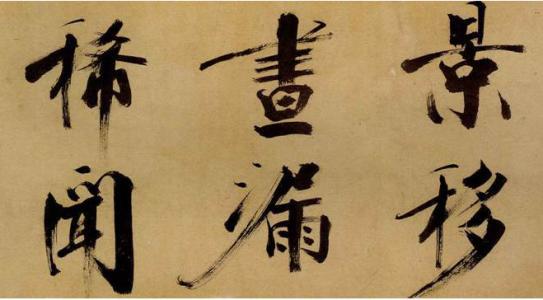 景移
晝漏
稀聞